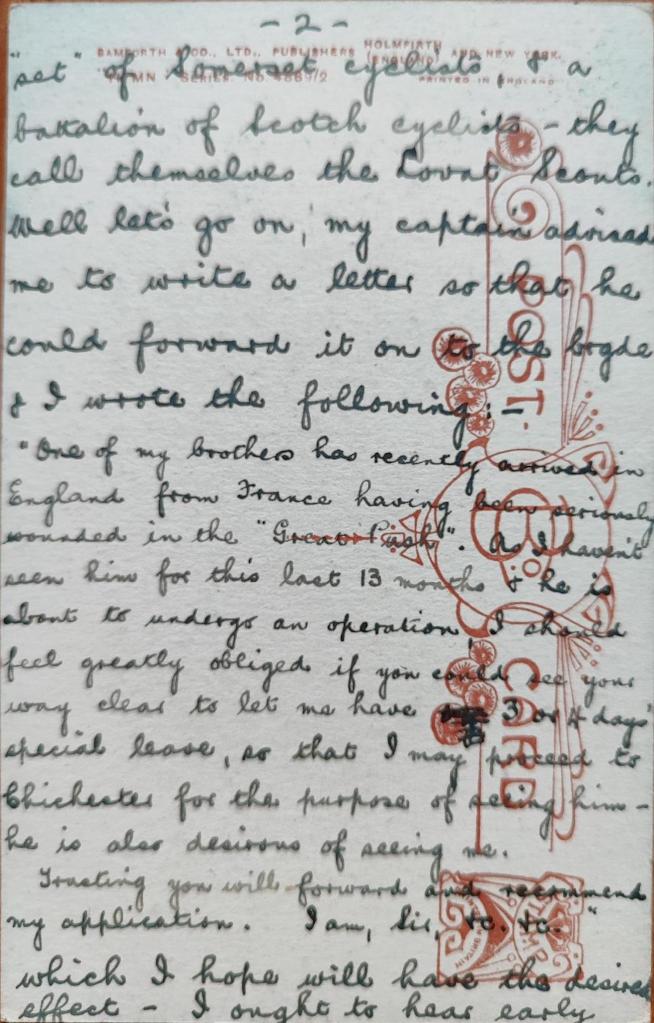 - 2 -
BAMFORTH & CO., LTD., PUBLISHERS HOLMFIRTH (ENGLAND) AND NEW YORK.
HYMN SERIES. No. 4889/2 PRINTED IN ENGLAND
"set" of Somerset cyclists & a
battalion of Scotch cyclists - they
call themselves the Lovat Scouts.
Well let's go on, my captain advised
me to write a letter so that he
could forward it on to the brgde
& I wrote the following:-
"One of my brothers has recently arrived in
England from France having been seriously
wounded in the "Great Push". As I haven't
seen him for this last 13 months & he is
about to undergo an operation, I should
feel greatly obliged if you could see your
way clear to let me have 3 or 4 days'
special leave, so that I may proceed to
Chichester for the purpose of seeing him -
he is also desirous of seeing me.
Trusting you will forward and recommend
my application. I am, Sir, &c. &c."
which I hope will have the desired
effect - I ought to hear early
POST CARD
B